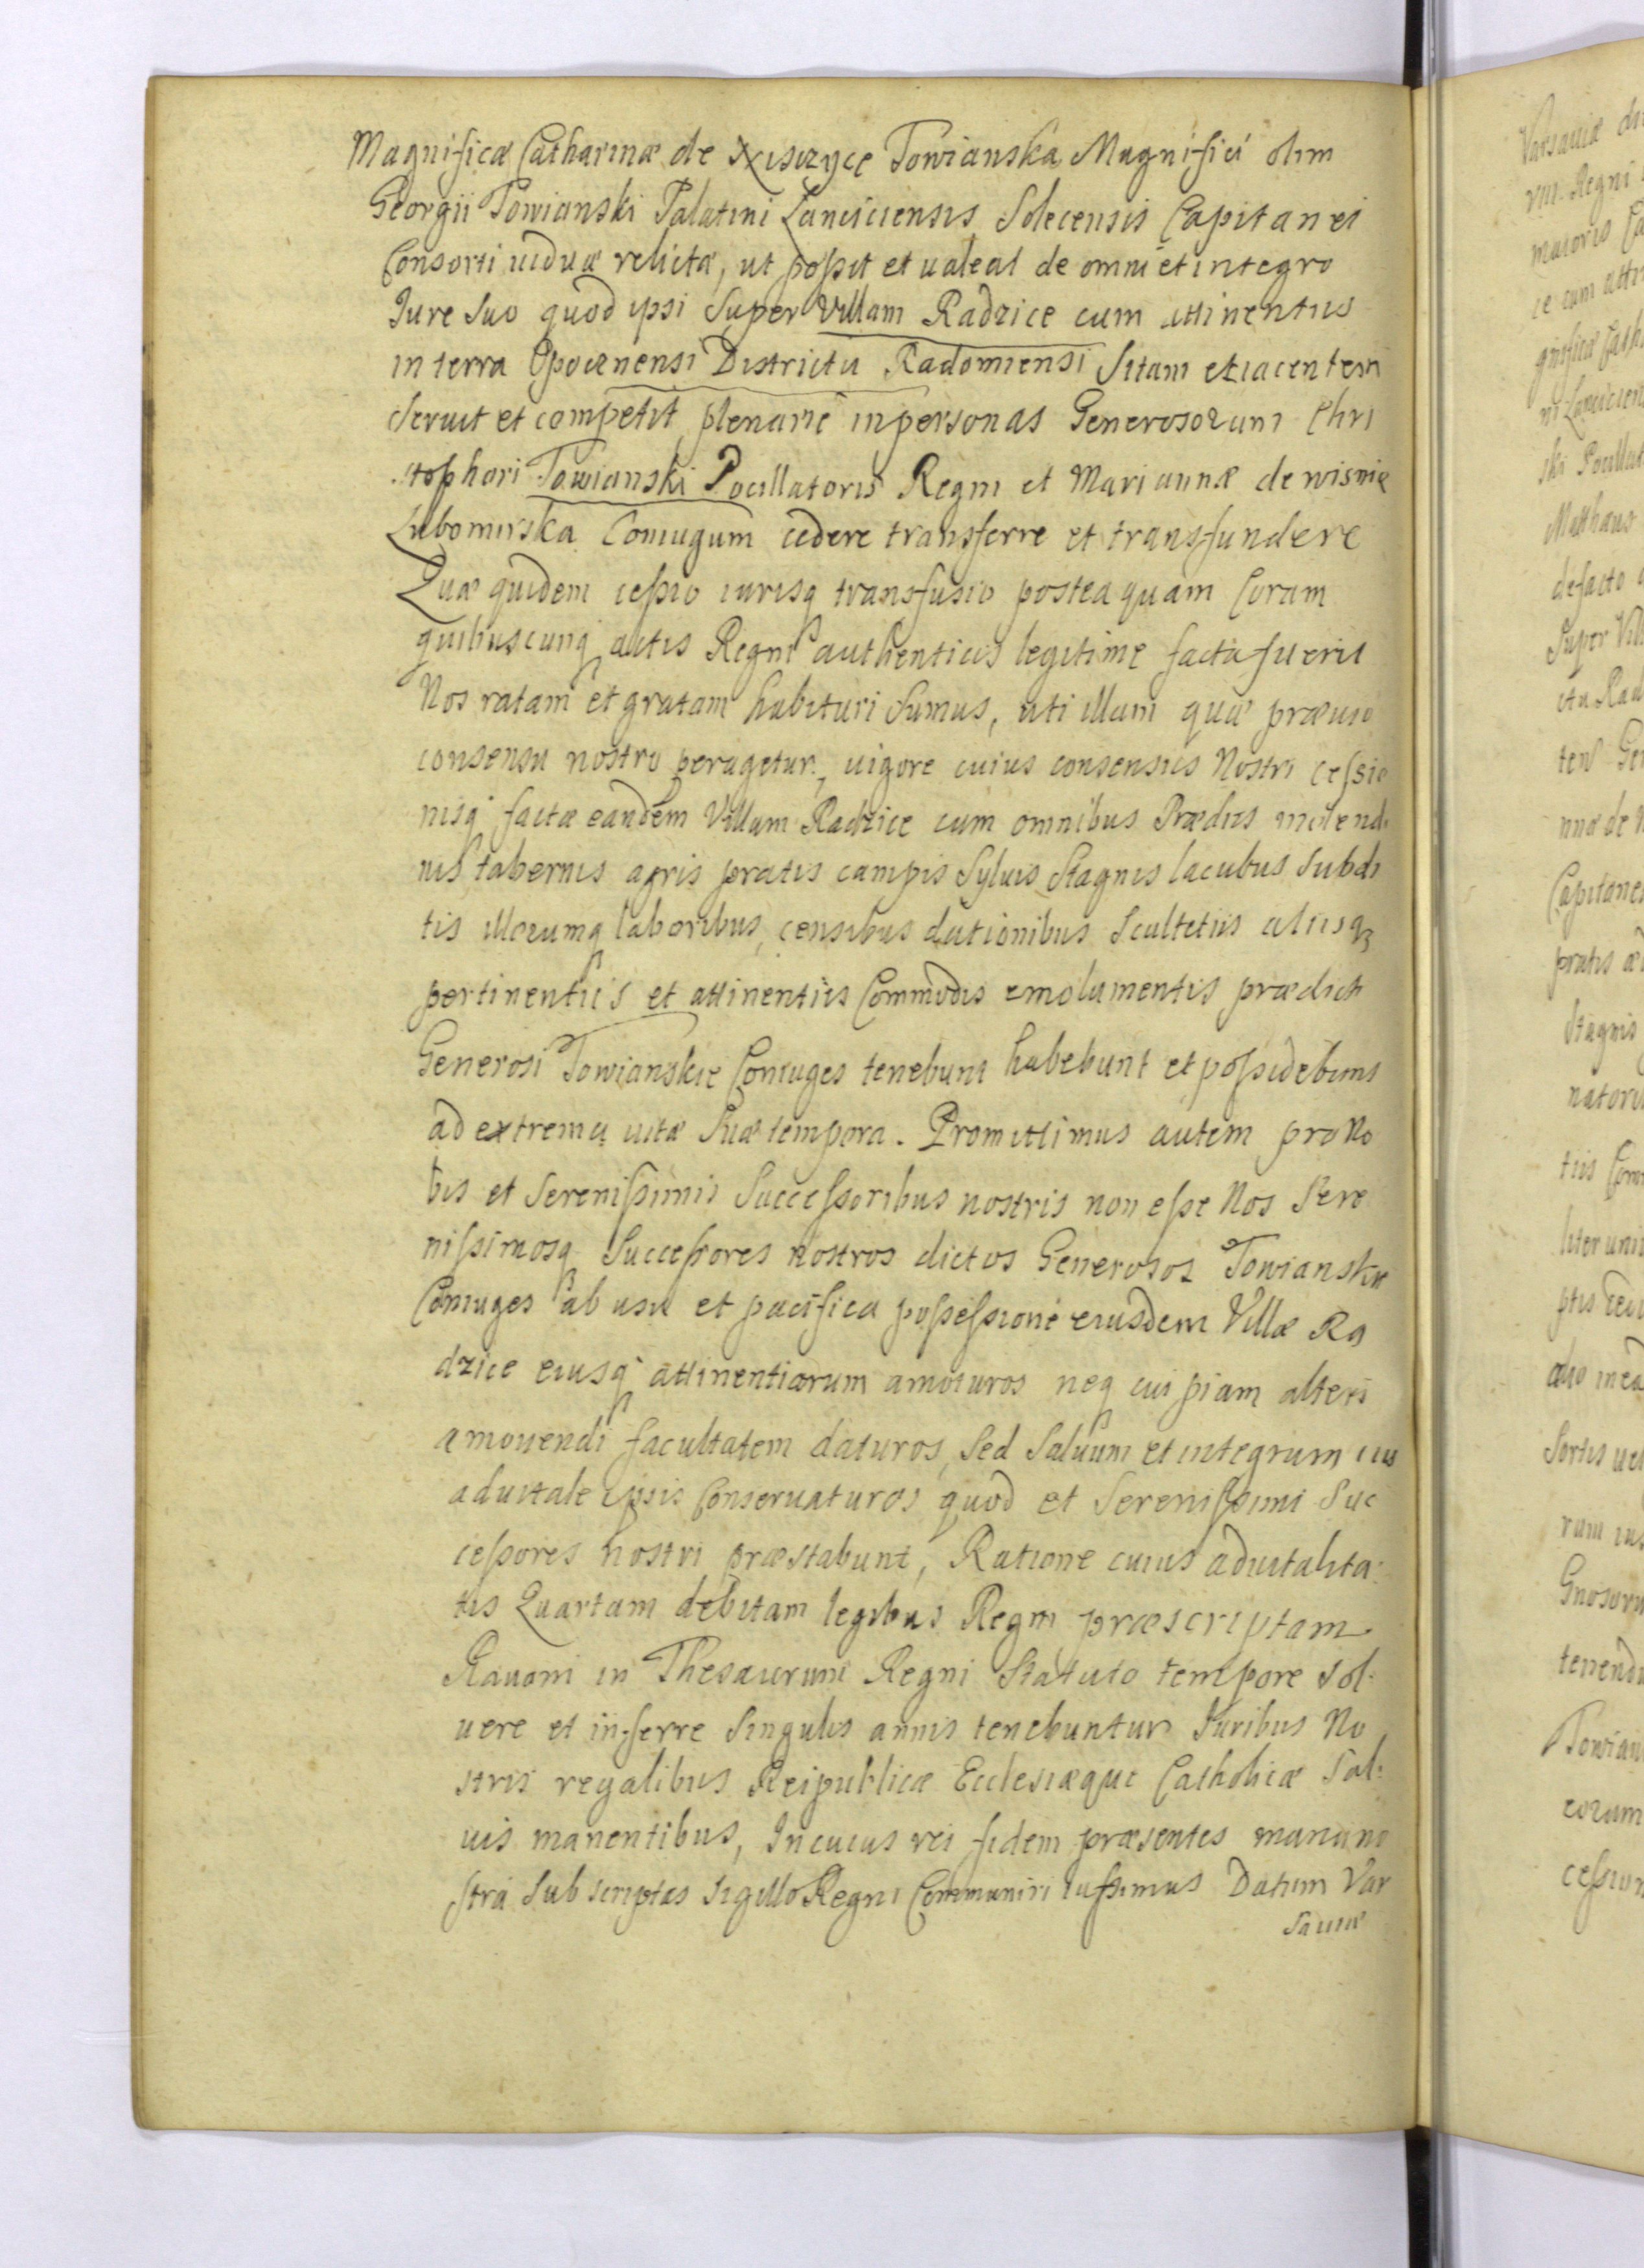 Magnificæ Catharinæ de Towianska Magnifici olim
Georgii Towianski Palatini Lanciciensis Solecensis Capitanei
Consorti viduæ relictæ, ut possit et ualeat de omni et integro
Iure Suo quod ipsi Super Villam Radzice cum attinentiis
in terra Opocznensi Districtu Radomiensi Sitam et iacentem
Seruit et competit plenarie in personas Generosorum Chri
stophori Towianski Pocillatoris Regni et Mariannæ de wisnie
Lubomirska Coniugum cedere transferre et transfundere
Quæ quidem cessio iurisq transfusio postea quam Coram
quibuscunq actis Regni authenticis legitime facta fuerit
Nos ratam et gratam habituri Sumus, uti illam quæ præuio
consensu nostro peragetur, uigore cuius consensus Nostri cessio
nisq factæ eandem Villam Radzice cum omnibus Prædiis molendi
nis tabernis agris pratis campis Syluis Stagnis lacubus Subdi
tis illorumq laboribus, censibus dationibus Scultetiis aliisq
pertinentiis et attinentiis Commodis emolumentis prædicti
Generosi Towianskie Coniuges tenebunt habebunt et possidebunt
ad extrema uitæ Suæ tempora. Promittimus autem pro No
bis et Serenissimis Successoribus nostris non esse Nos Sere
nissimosq Successores nostros dictos Generosos Towianskie
Coniuges ab usu et pacifica possessione eiusdem Villæ Ra
dzice eiusq attinentiarum amoturos neq cuipiam alteri
amouendi facultatem daturos, Sed Saluum et integrum ius
aduitale ipsis Conseruaturos quod et Serenissimi Suc
cessores nostri præstabunt, Ratione cuius aduitalita
tis Quartam debitam legibus Regni præscriptam
Rauam in Thesaurum Regni Statuto tempore sol
uere et inferre Singulis annis tenebuntur Iuribus No
stris regalibus Reipublicæ Ecclesiæque Catholicæ Sal
uis manentibus, In cuius rei fidem præsentes manu no
stra Subscriptas Sigillo Regni Communiri iussimus Datum Var
sauiæ